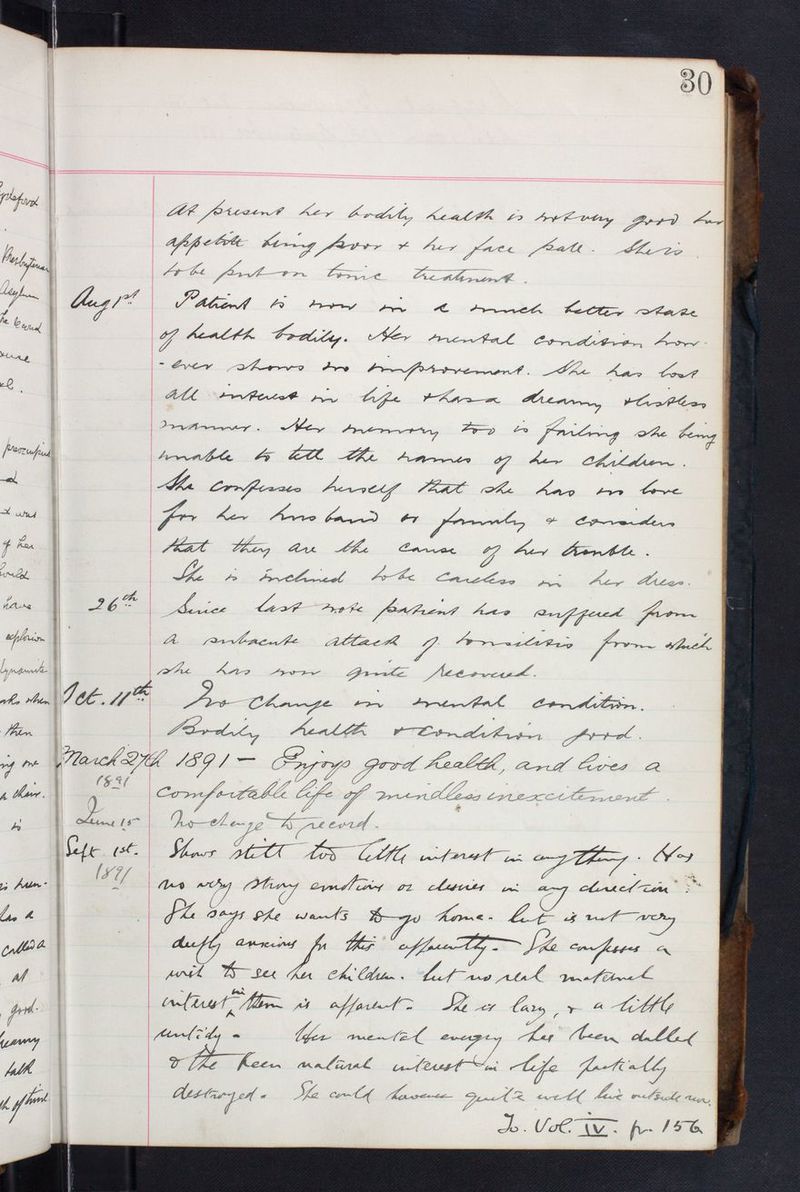 30
At present her bodily health is not very good her
appetite being poor & her face pale. She is
to be put on tonic treatment.
Aug 1st Patient is now in a much better state
of health bodily. Her mental condition how-
-ever shows no improvement. She has lost
all interest in life & has a dreamy & listless
manner. Her memory too is failing she being
unable to tell the names of her children.
She confesses herself that she has no love
for her husband or family & considers
that they are the cause of her trouble.
She is inclined to be careless in her dress.
26th Since last note patient has suffered from
a subacute attack of tonsilitis from which
she has now quite recovered.
Oct. 11th No change in mental condition.
Bodily health & condition good.
March 27th 1891 - Enjoys good health, and lives a
1891 comfortable life of mindless inexcitement.
June 15 No change to record.
Sept 1st. Shows still too little interest in anything. Has
1891 no very strong emotions or desires in any direction.
She says she wants to go home - but is not very
deeply anxious for this apparently - She confesses a
wish to see her children - but no real maternal
interest in them is apparent - She is lazy, & a little
untidy - Her mental energy has been dulled
& the keen natural interest in life partially
destroyed. She could however quite well live outside now.
To. Vol. IV. p. 156
Presbyterian
Asylum